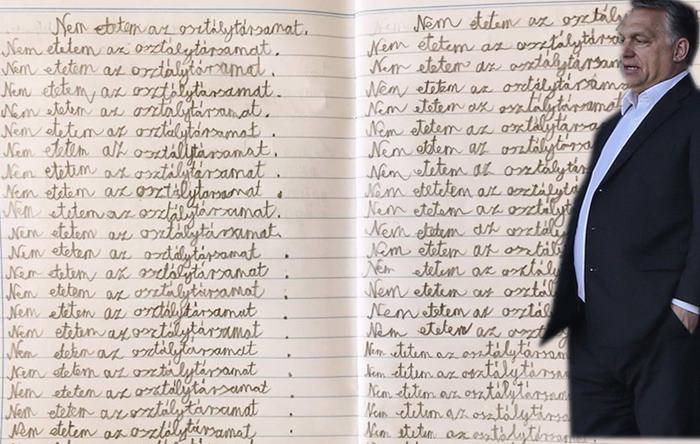 Nem etetem az osztálytársamat.
Nem etetem az osztálytársamat.
Nem etetem az osztálytársamat.
Nem etetem az osztálytársamat.
Nem etetem az osztálytársamat.
Nem etetem az osztálytársamat.
Nem etetem az osztálytársamat.
Nem etetem az osztálytársamat.
Nem etetem az osztálytársamat.
Nem etetem az osztálytársamat.
Nem etetem az osztálytársamat.
Nem etetem az osztálytársamat.
Nem etetem az osztálytársamat.
Nem etetem az osztálytársamat.
Nem etetem az osztálytársamat.
Nem etetem az osztálytársamat.
Nem etetem az osztálytársamat.
Nem etetem az osztálytársamat.
Nem etetem az osztálytársamat.
Nem etetem az osztálytársamat.
Nem etetem az osztálytársamat.
Nem etetem az osztály
Nem etetem az osztálytársa
Nem etetem az osztálytársa
Nem etetem az osztálytársama
Nem etetem az osztálytársamat
Nem etetem az osztálytársa
Nem etetem az osztálytárs
Nem etetem az osztálytárs
Nem etetetem az osztálytá
Nem etetem az osztály
Nem etetem az osztály
Nem etetem az osztál
Nem etetem az osztál
Nem etetem az osztál
Nem etetem az osztál
Nem etetem az osztál
Nem etetem az osztálytársam
Nem etetem az osztálytársa
Nem etetem az osztálytársa
Nem etetem az osztálytársa
Nem etetem az osztálytársa